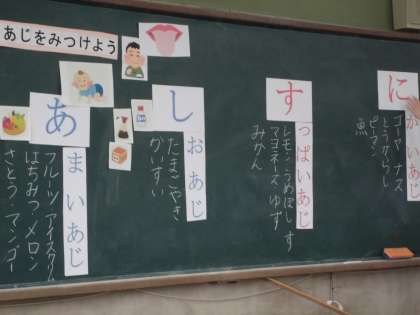 あじをみつけよう
に
がいあじ
ゴーヤ・ナス
とうがらし
ピーマン
魚
す
っぱいあじ
レモン・うめぼし す
マヨネーズ ゆず
みかん
し
おあじ
たまごやき
かいすい
あ
まいあじ
フルーツ アイスクリーム
はちみつ・メロン
さとう・マンゴー